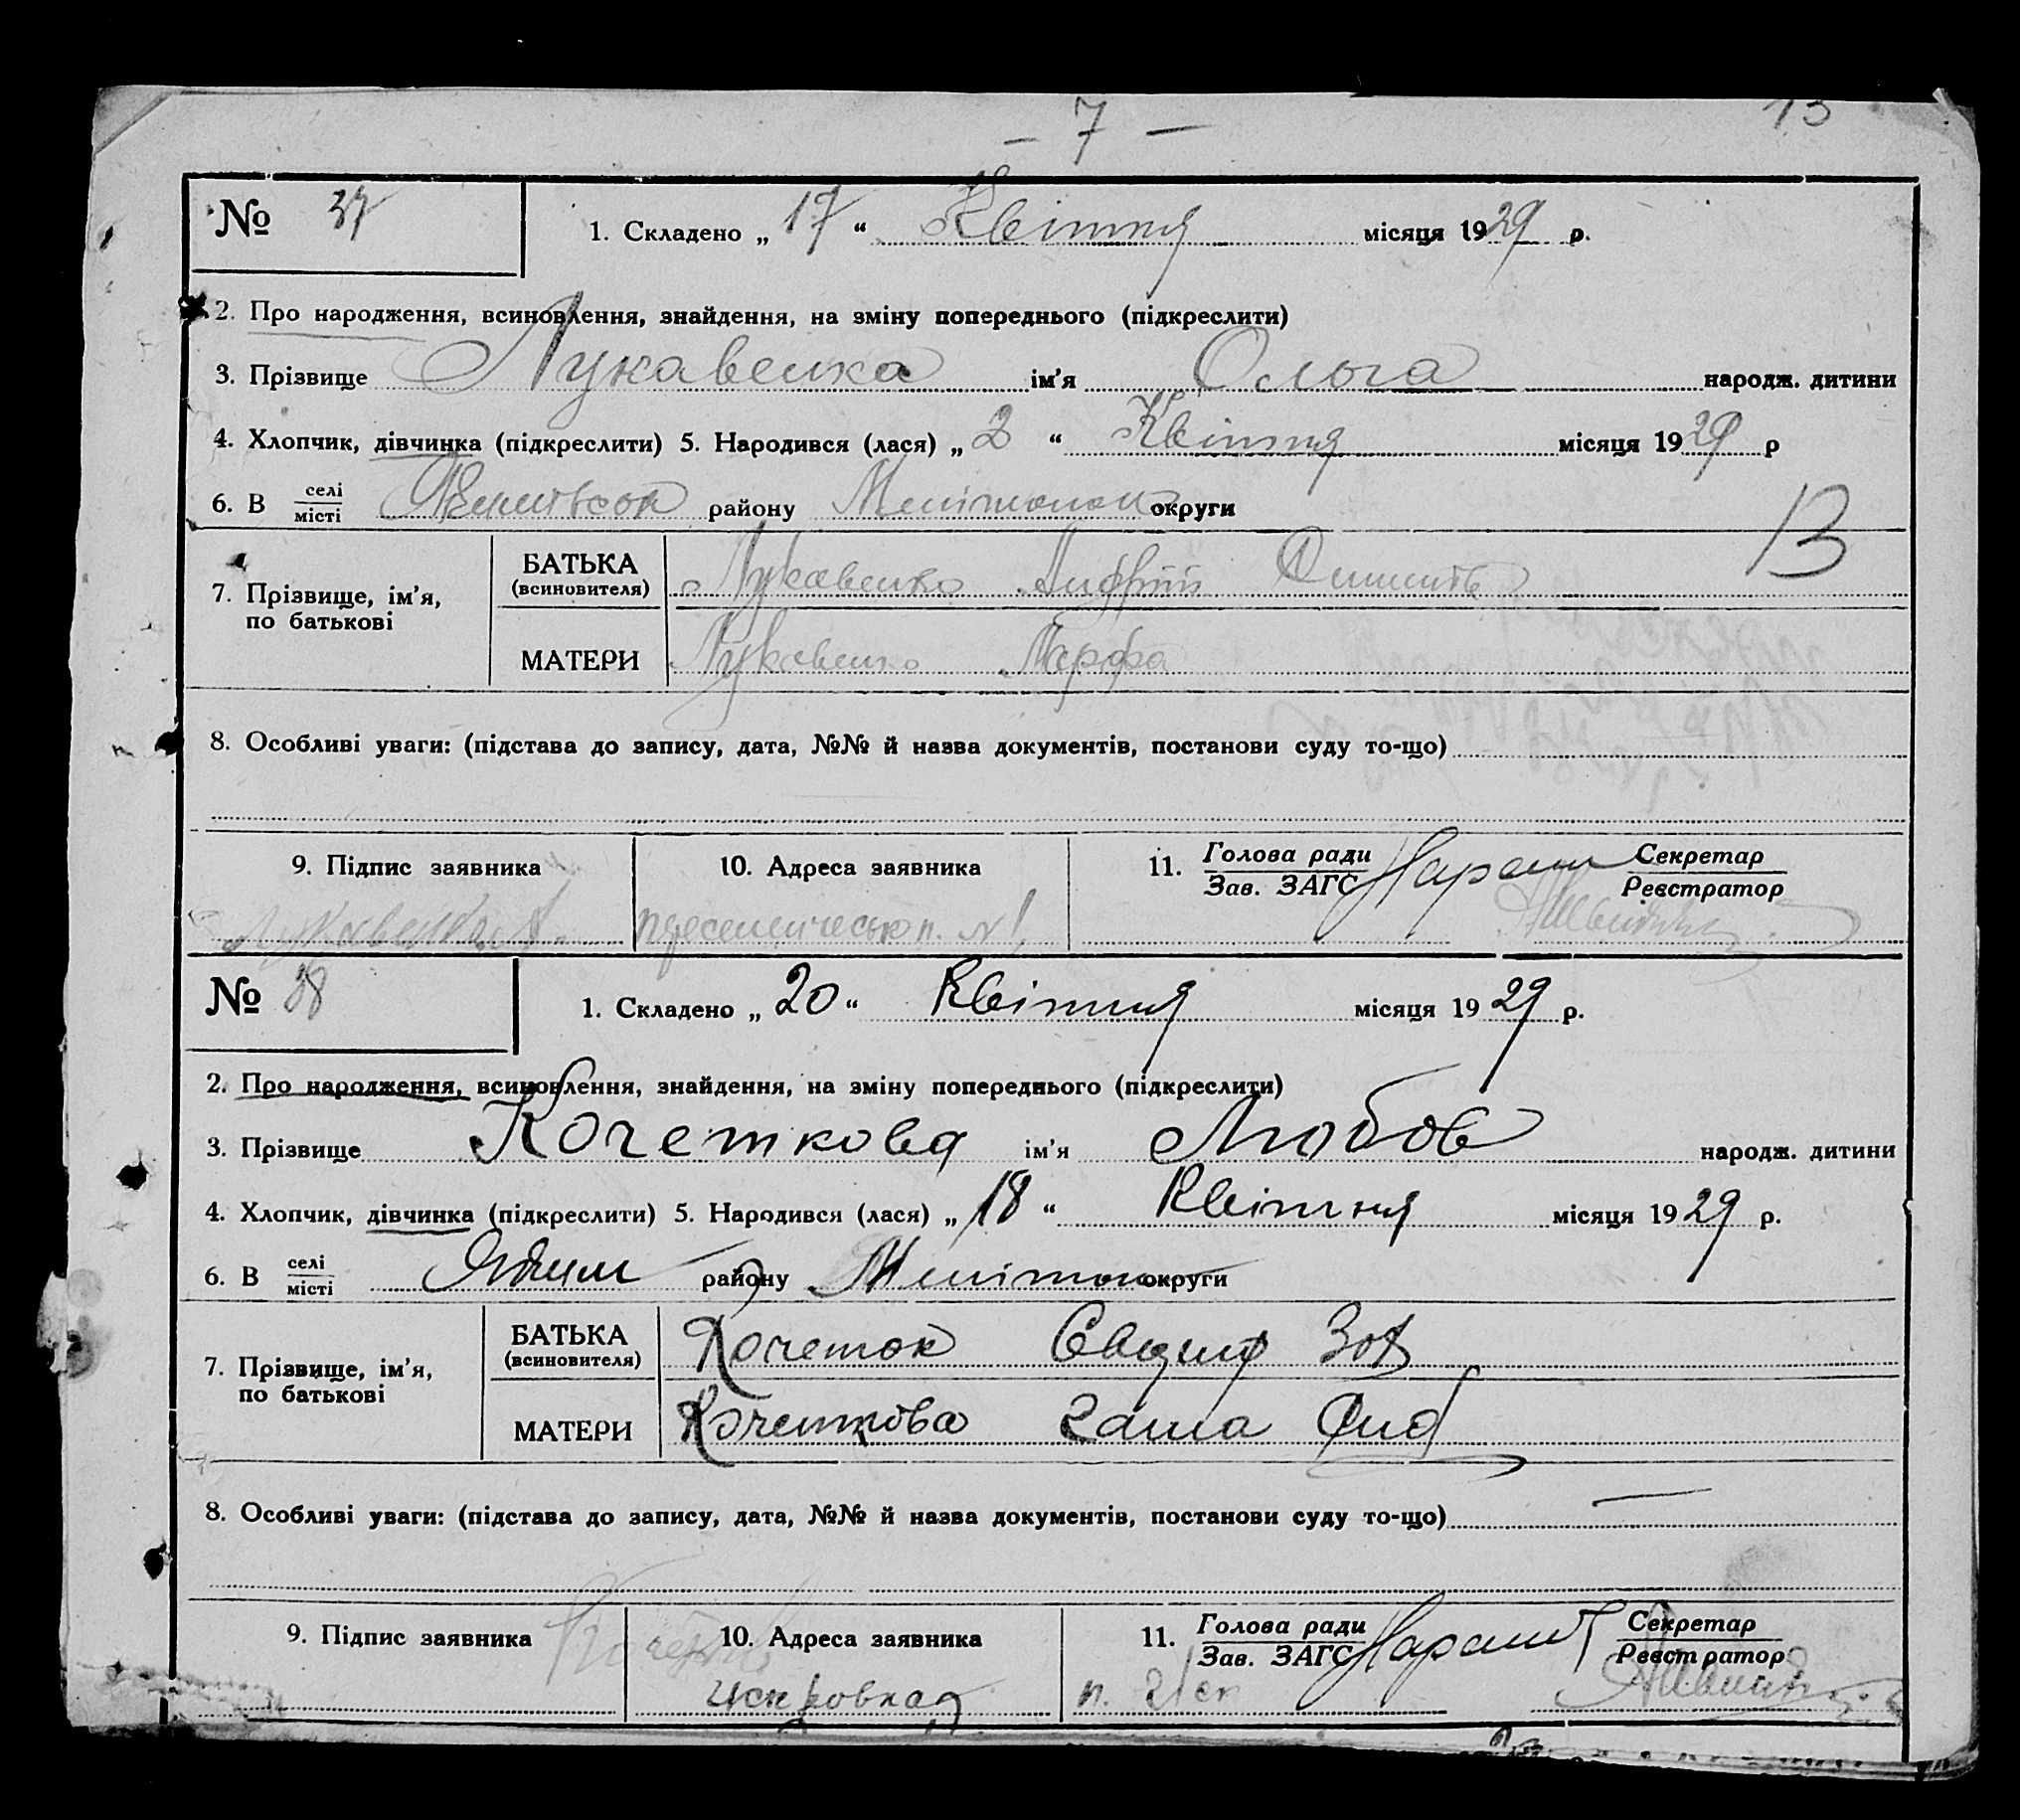 – 7 –
13
№ 37
1. Складено „ 17 “ Квітня місяця 1929 р.
2. Про народження, всиновлення, знайдення, на зміну попереднього (підкреслити)
3. Прізвище Лукавенка ім’я Ольга народж. дитини
4. Хлопчик, дівчинка (підкреслити) 5. Народився (лася) „ 2 “ Квітня місяця 1929 р
6. В селі місті району округи
13
7. Прізвище, ім’я, по батькові
БАТЬКА (всиновителя) Лукавенко
МАТЕРИ Лукавенко Марфа
8. Особливі уваги: (підстава до запису, дата, №№ й назва документів, постанови суду то-що)
9. Підпис заявника 10. Адреса заявника 11. Голова ради Зав. ЗАГС Секретар Реєстратор
№ 38
1. Складено „ 20 “ Квітня місяця 1929 р.
2. Про народження, всиновлення, знайдення, на зміну попереднього (підкреслити)
3. Прізвище Кочеткова ім’я Любов народж. дитини
4. Хлопчик, дівчинка (підкреслити) 5. Народився (лася) „ 18 “ Квітня місяця 1929 р.
6. В селі місті району округи
7. Прізвище, ім’я, по батькові
БАТЬКА (всиновителя) Кочеток
МАТЕРИ Кочеткова
8. Особливі уваги: (підстава до запису, дата, №№ й назва документів, постанови суду то-що)
9. Підпис заявника 10. Адреса заявника 11. Голова ради Зав. ЗАГС Секретар Реєстратор